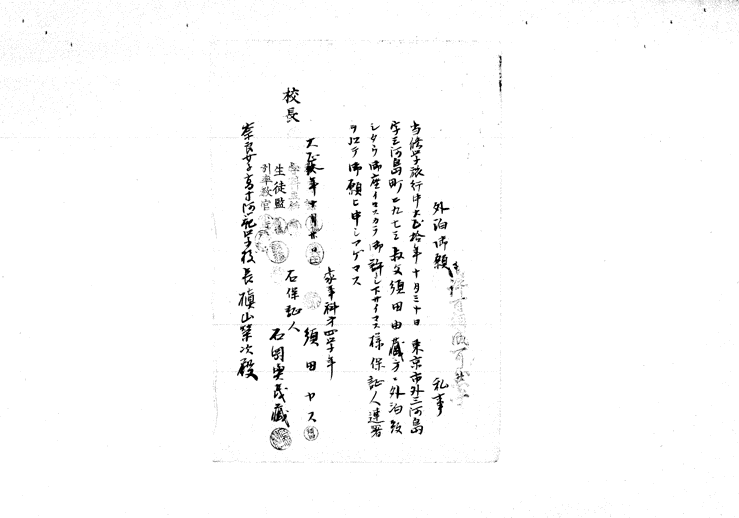 外泊御願
私事
当修学旅行中大正拾年十月三十日東京市外三河島
字三河島町二九七三叔父須田由蔵方ヘ外泊致
シタウ御座イマスカラ御許シ下サイマス様保証人連署
ヲ以テ御願ヒ申シアゲマス
大正拾年十月廿 日
家事科第四学年
須田ヤス
右保証人
石岡
奈良女子高等師範学校長槙山栄次殿
校長
生徒監
引率教官